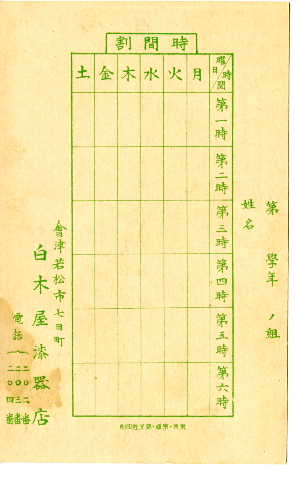 時間割
第 學年 ノ組
姓名
曜日 時間
月 火 水 木 金 土
第一時
第二時
第三時
第四時
第五時
第六時
會津若松市七日町
白木屋漆器店
電話